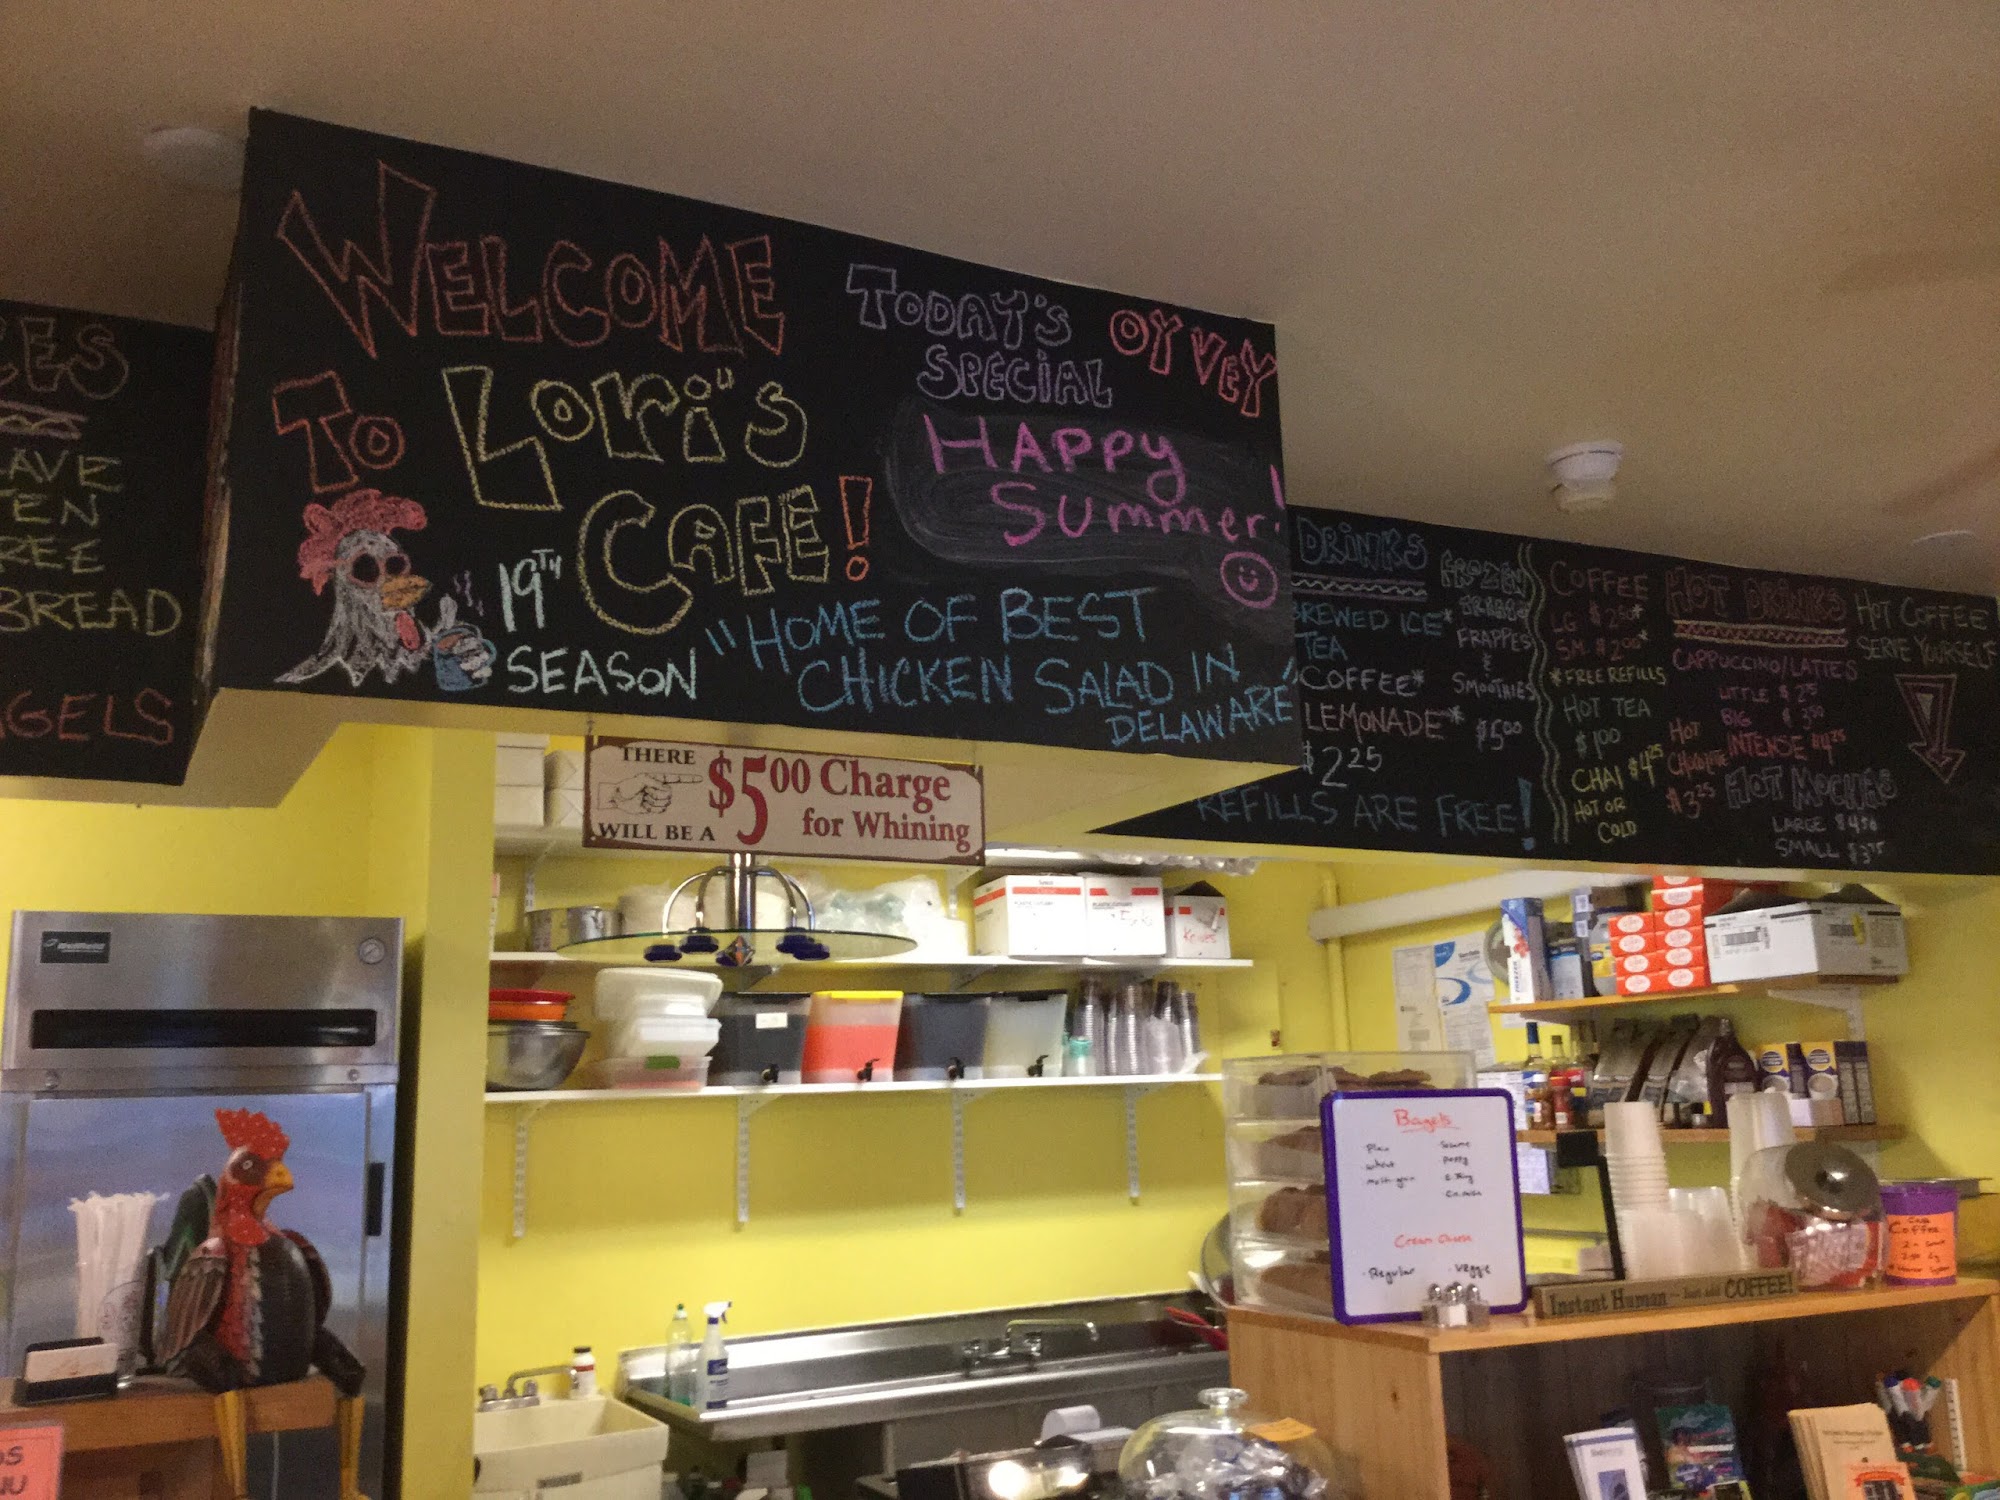 WELCOME
TO Lori's
CAFE!
19TH
SEASON
TODAY'S
SPECIAL
OY VEY
HAPPY
SUMMER!
"HOME OF BEST
CHICKEN SALAD IN
DELAWARE"
AVE
EN
REE
BREAD
GELS
THERE
WILL BE A
$5.00 Charge
for Whining
DRINKS
BREWED ICE*
TEA
COFFEE*
LEMONADE*
$2.25
REFILLS ARE FREE!
FROZEN
FRAPPES
&
SMOOTHIES
$5.00
COFFEE
LG $2.50*
SM. $2.00*
*FREE REFILLS
HOT TEA
$1.00
CHAI $4.25
HOT OR
COLD
HOT DRINKS
CAPPUCCINO/LATTES
LITTLE $2.75
BIG $3.50
INTENSE $4.25
HOT
CHOCOLATE
$3.25
HOT MOCHAS
LARGE $4.50
SMALL $3.75
HOT COFFEE
SERVE YOURSELF
Knives
Bagels
Plain
wheat
multi-grain
Sesame
Poppy
Cream Cheese
Regular
Veggie
Instant Human - Just add COFFEE!
Coffee